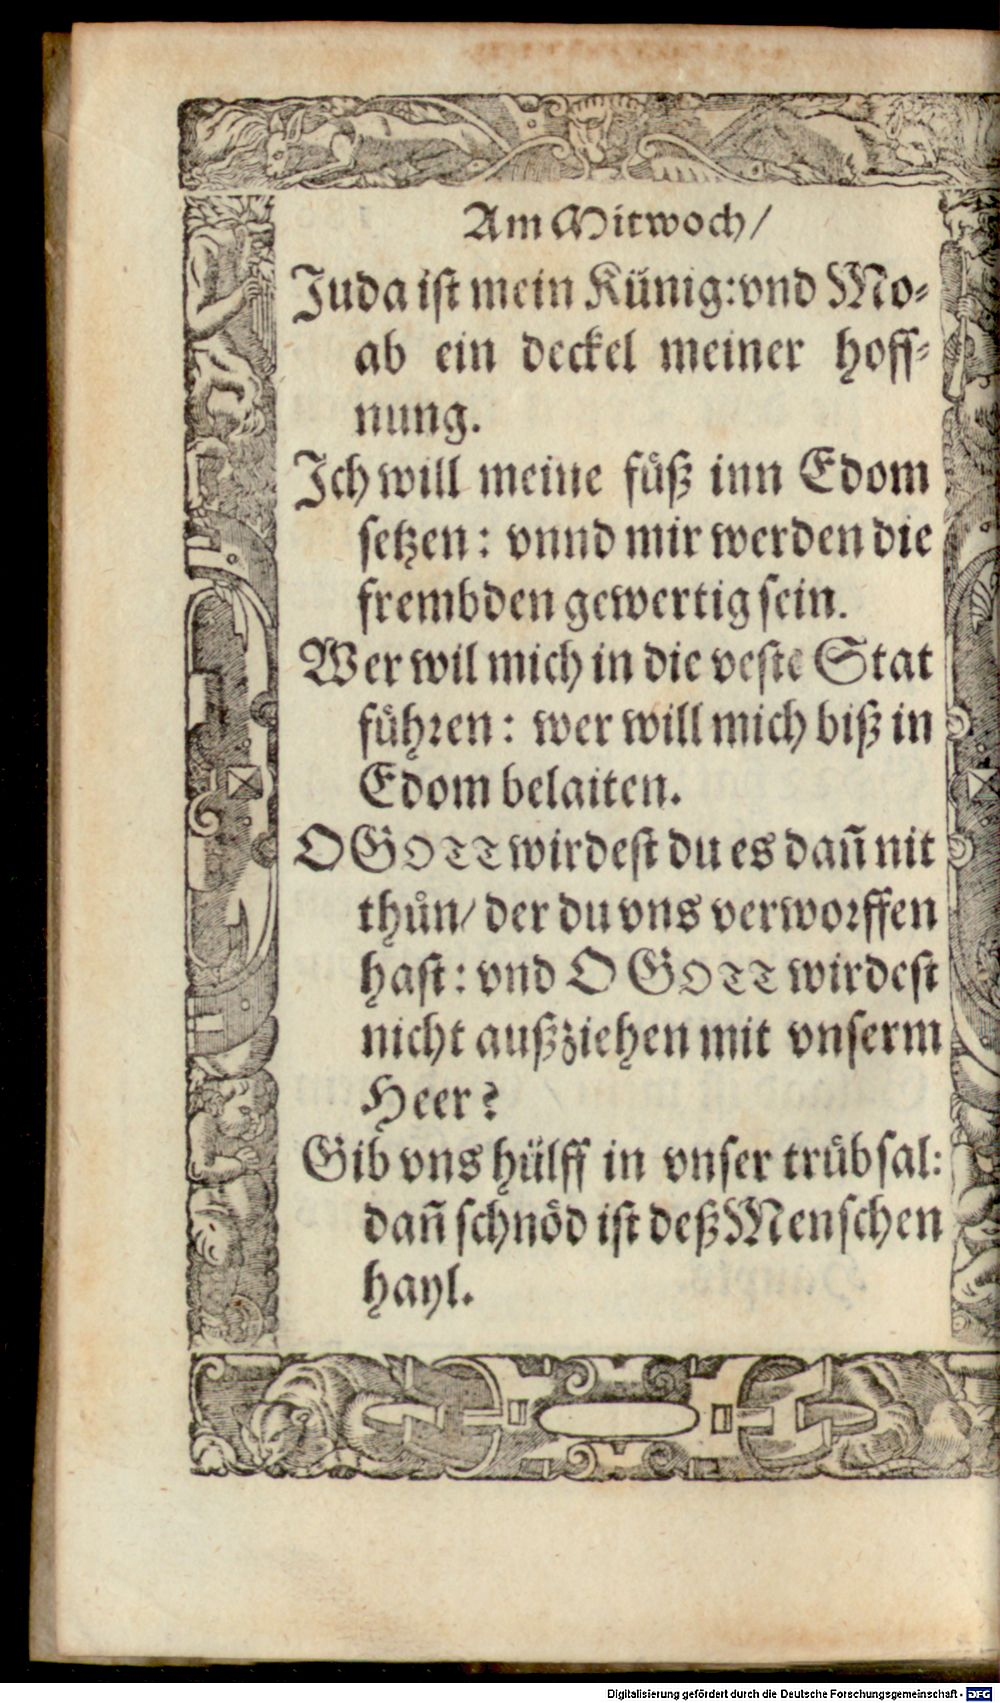 Am Mitwoch/
Juda ist mein Künig: vnd Mo⸗
ab ein deckel meiner hoff⸗
nung.
Ich will meine fuͤß inn Edom
setzen: vnnd mir werden die
frembden gewertig sein.
Wer wil mich in die veste Stat
fuͤhren: wer will mich biß in
Edom belaiten.
O GOTT wirdest du es dañ nit
thůn/ der du vns verworffen
hast: vnd O GOTT wirdest
nicht außziehen mit vnserm
Heer?
Gib vns hülff in vnser truͤbsal:
dañ schnoͤd ist deß Menschen
hayl.
Digitalisierung gefördert durch die Deutsche Forschungsgemeinschaft - DFG